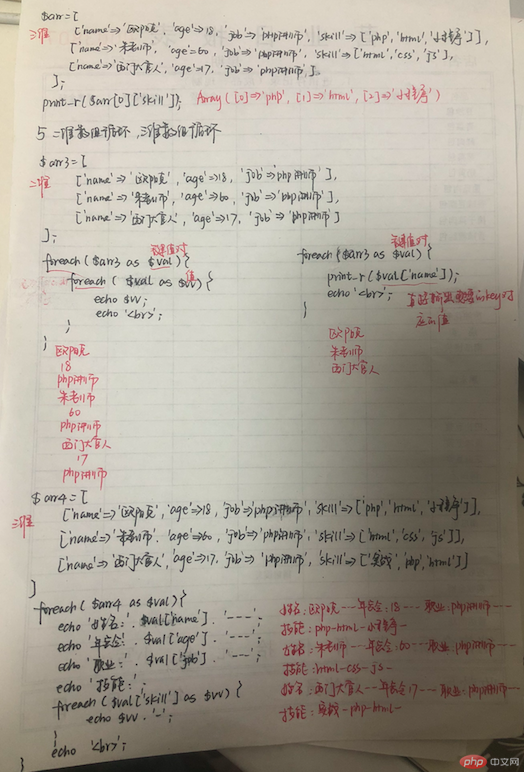 $arr=[
三维 ['name'=>'欧阳克','age'=>18,'job'=>'php讲师','skill'=>['php','html','小程序']],
['name'=>'朱老师','age'=>60,'job'=>'php讲师','skill'=>['html','css','js'],
['name'=>'西门大官人','age'=>17,'job'=>'php讲师'].
];
print_r($arr[0]['skill']); Array([0]=>'php',[1]=>'html',[2]=>'小程序')
5 二维数组循环,三维数组循环
$arr3=[
二维 ['name'=>'欧阳克','age'=>18,'job'=>'php讲师'],
['name'=>'朱老师','age'=>60,'job'=>'php讲师'],
['name'=>'西门大官人','age'=>17,'job'=>'php讲师']
];
键值对
foreach($arr3 as $val){
foreach($val as $vv){ 值
echo $vv;
echo '<br>';
}
}
欧阳克
18
php讲师
朱老师
60
php讲师
西门大官人
17
php讲师
键值对
foreach($arr3 as $val){
print_r($val['name']);
echo '<br>'; 直接输出要的key对
应的值
}
欧阳克
朱老师
西门大官人
$arr4=[
三维 ['name'=>'欧阳克','age'=>18,'job'=>'php讲师','skill'=>['php','html','小程序']],
['name'=>'朱老师','age'=>60,'job'=>'php讲师','skill'=>['html','css','js']],
['name'=>'西门大官人','age'=>17,'job'=>'php讲师','skill'=>['实战','php','html']
]
foreach($arr4 as $val){
echo '姓名:'.$val['name'].'---';
echo '年龄:'.$val['age'].'---';
echo '职业:'.$val['job'].'---';
echo '技能:';
foreach($val['skill'] as $vv){
echo $vv.'-';
}
echo '<br>';
}
姓名:欧阳克---年龄:18---职业:php讲师---
技能:php-html-小程序-
姓名:朱老师---年龄:60---职业:php讲师---
技能:html-css-js-
姓名:西门大官人---年龄:17---职业:php讲师---
技能:实战-php-html-
php 中文网